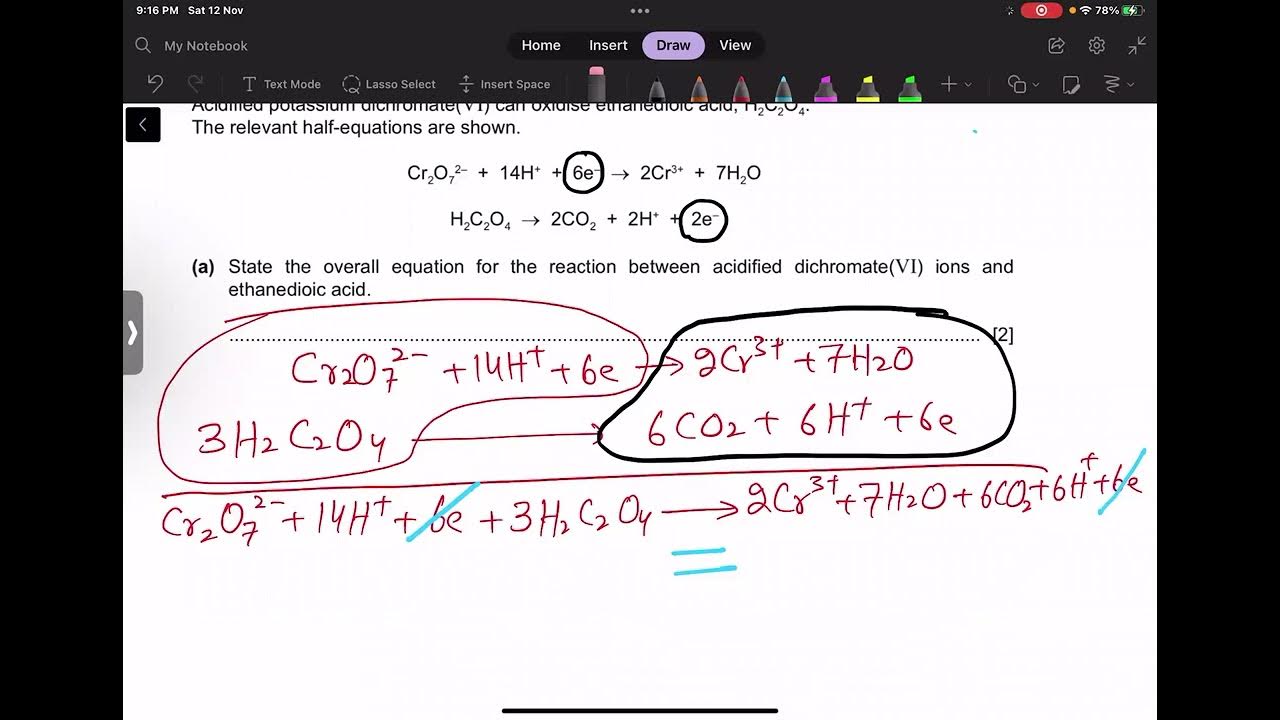 9:16 PM Sat 12 Nov
78%
My Notebook
Home Insert Draw View
Text Mode Lasso Select Insert Space
Acidified potassium dichromate(VI) can oxidise ethanedioic acid, H₂C₂O₄.
The relevant half-equations are shown.
Cr₂O₇²⁻ + 14H⁺ + 6e⁻ → 2Cr³⁺ + 7H₂O
H₂C₂O₄ → 2CO₂ + 2H⁺ + 2e⁻
(a) State the overall equation for the reaction between acidified dichromate(VI) ions and
ethanedioic acid.
[2]
Cr₂O₇²⁻ + 14H⁺ + 6e → 2Cr³⁺ + 7H₂O
3H₂C₂O₄ → 6CO₂ + 6H⁺ + 6e
Cr₂O₇²⁻ + 14H⁺ + 6e + 3H₂C₂O₄ → 2Cr³⁺ + 7H₂O + 6CO₂ + 6H⁺ + 6e